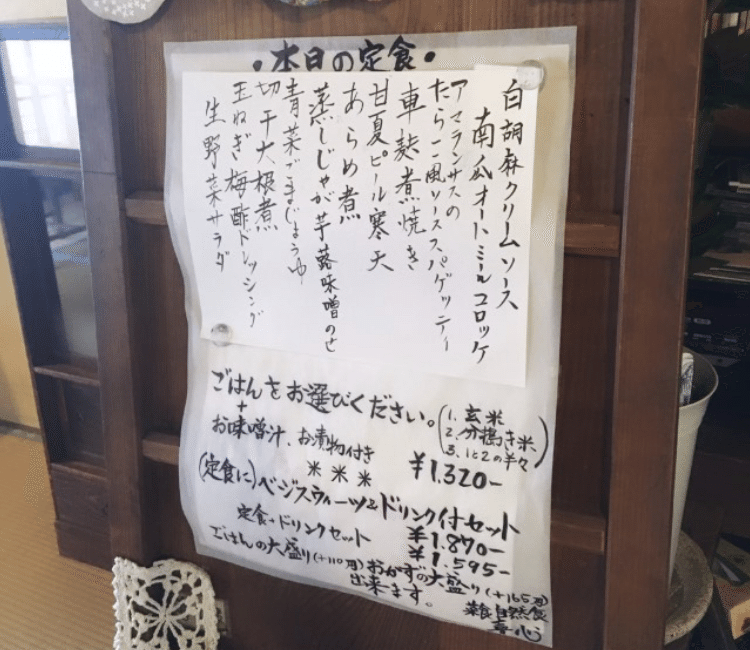 ・本日の定食・
白胡麻クリームソース
南瓜オートミールコロッケ
アマランサスの
たらこ風ソーススパゲッティー
車麩煮焼き
甘夏ピール寒天
あらめ煮
蒸しじゃが芋蕗味噌のせ
青菜ごまじょうゆ
切干大根煮
玉ねぎ梅酢ドレッシング
生野菜サラダ
ごはんをお選びください。
(1. 玄米
2. 分搗き米
3. 1と2の半々)
+
お味噌汁、お漬物付き
¥1.320-
※ ※ ※
(定食に)ベジスウィーツ&ドリンク付セット
¥1.870-
定食+ドリンクセット
¥1.595-
ごはんの大盛り(+110円)おかずの大盛り(+165円)
出来ます。
菜食自然食